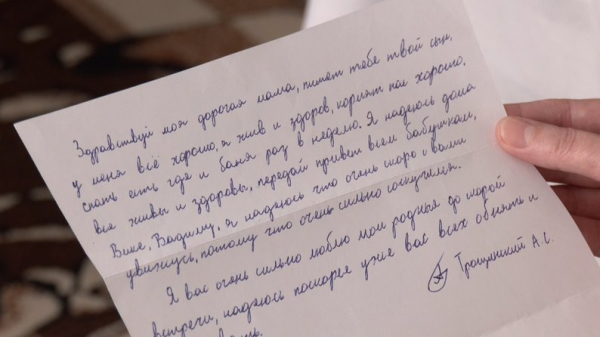 Здравствуй моя дорогая мама, пишет тебе твой сын.
у меня всё хорошо, я жив и здоров, кормят нас хорошо.
спать есть где и баня раз в неделю. Я надеюсь дома
все живы и здоровы, передай привет всем бабушкам,
Вике, Вадиму, я надеюсь что очень скоро с вами
увижусь, потому что очень сильно соскучился.
Я вас очень сильно люблю мои родные до скорой
встречи, надеюсь поскорее уже вас всех обнять и
Трощинский А.С.